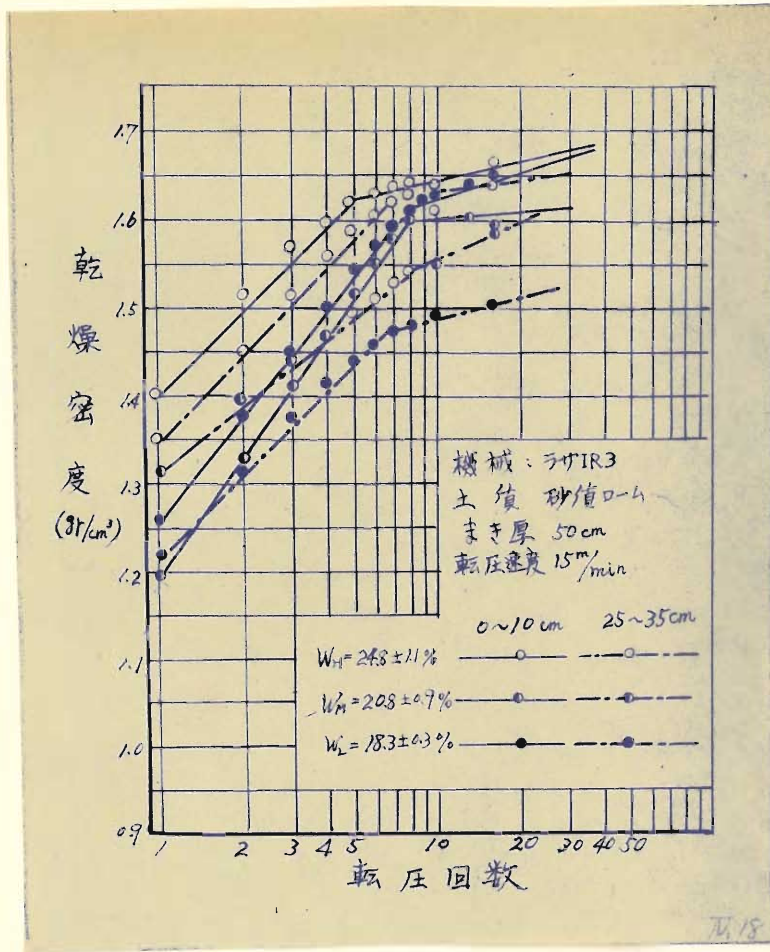 1.7
1.6
1.5
1.4
1.3
1.2
1.1
1.0
0.9
乾燥密度
(gr/cm³)
機械：ラサIR3
土質 砂質ローム
まき厚 50cm
転圧速度 15m/min
0~10cm 25~35cm
W_H=24.8±1.1%
W_M=20.8±0.9%
W_L=18.3±0.3%
1 2 3 4 5 10 20 30 40 50
転圧回数